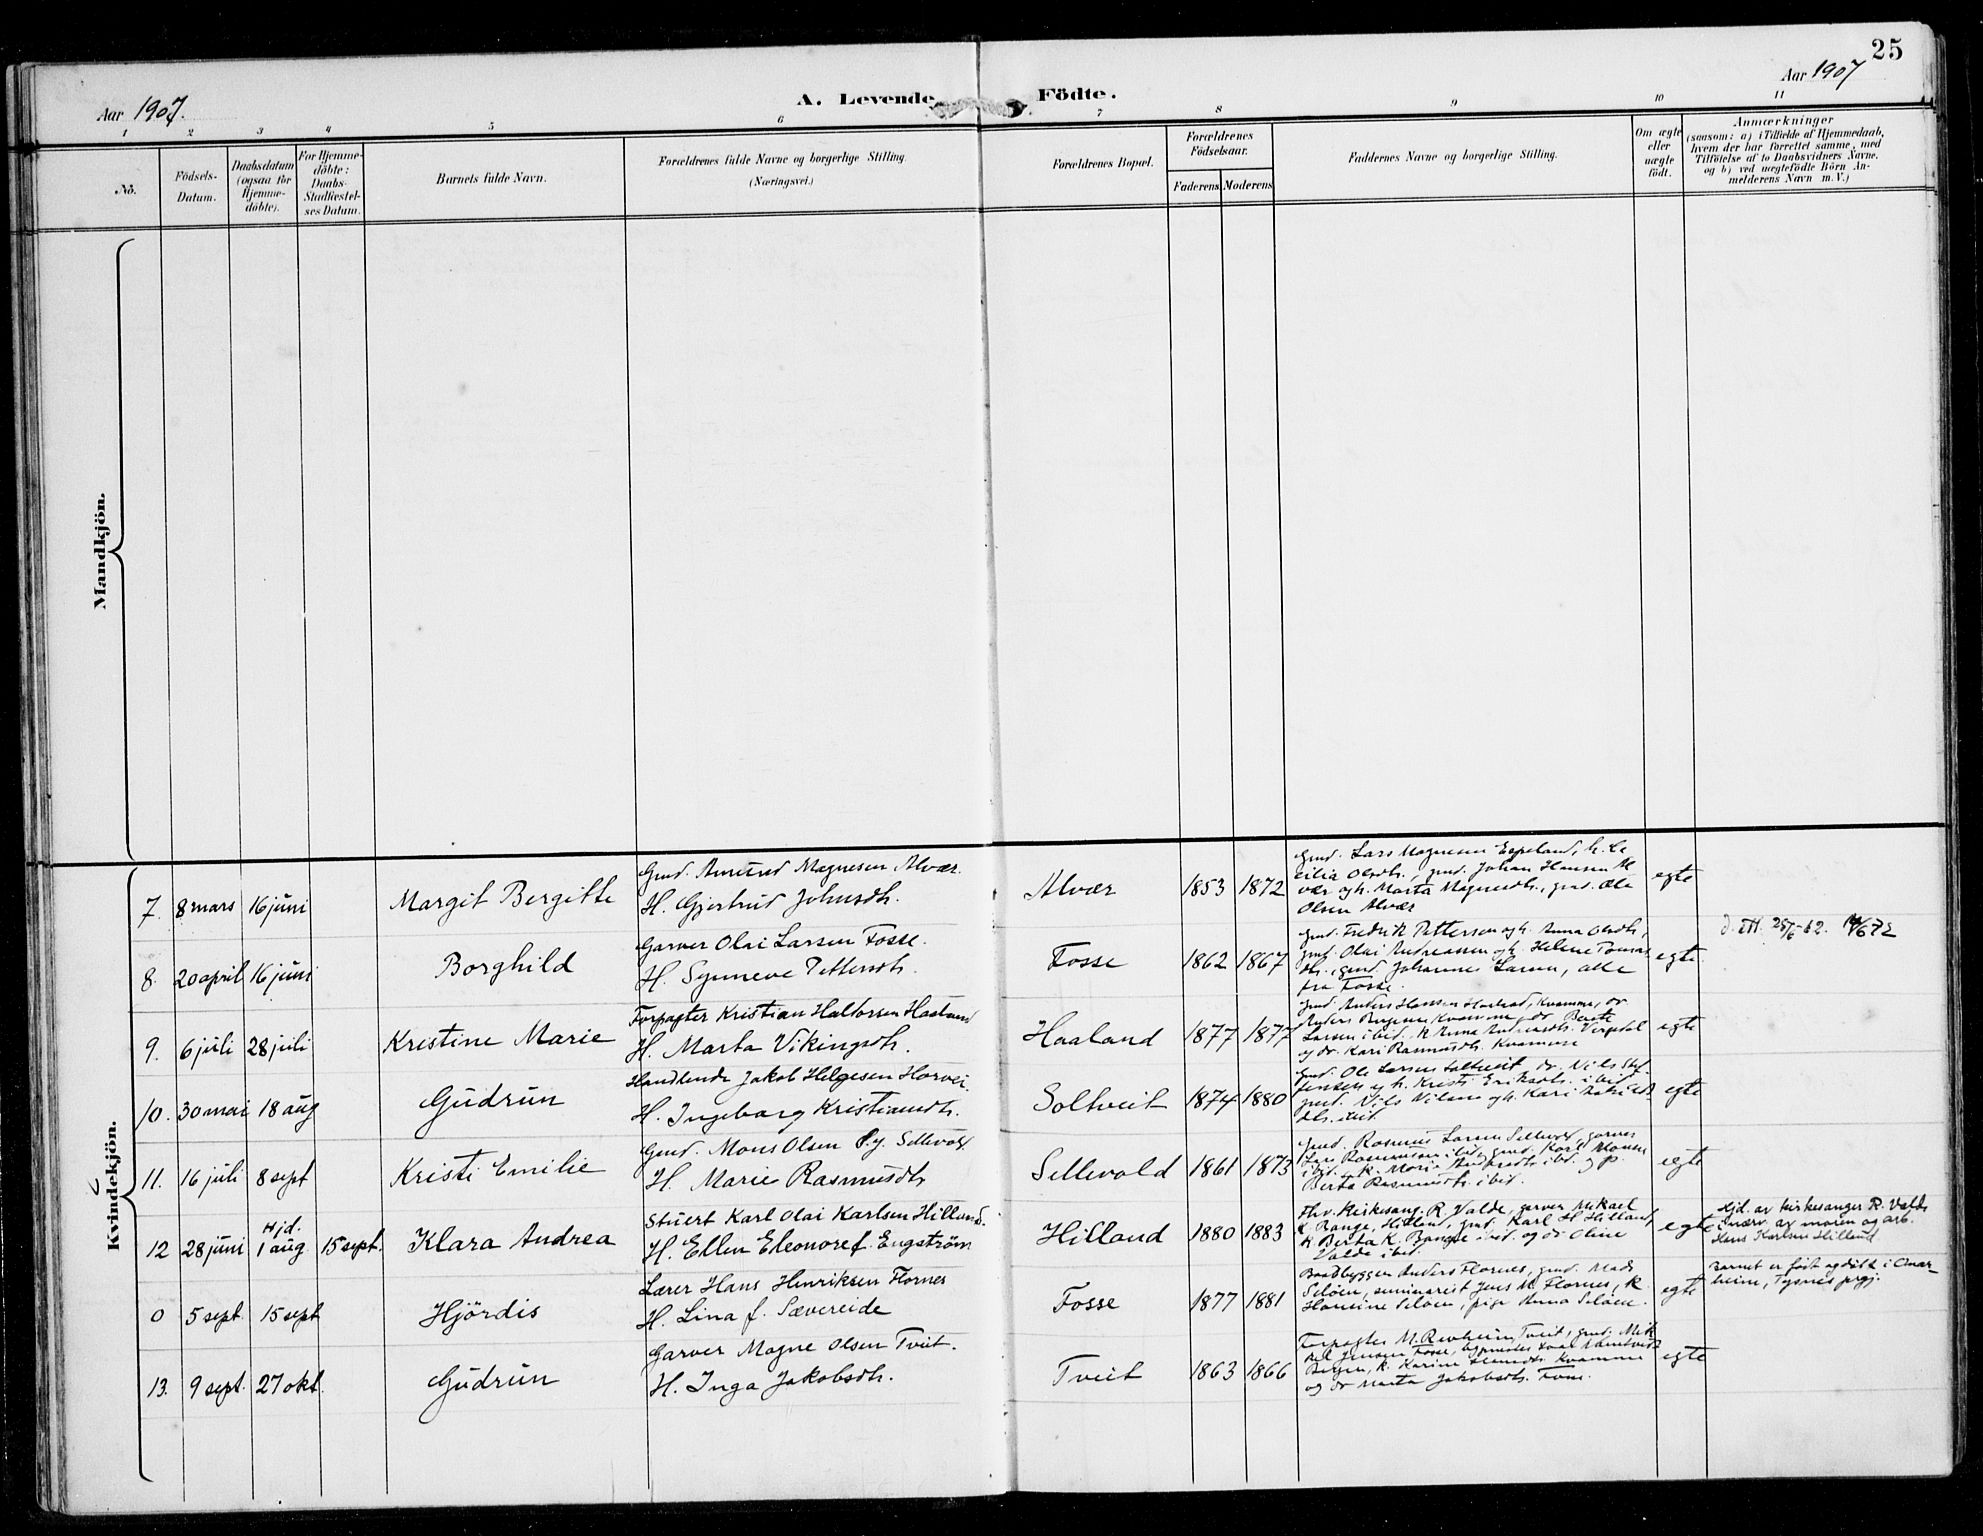 25
Aar 1907.
A. Levende Födte.
Aar 1907
1 2 3 4 5 6 7 8 9 10 11
No.
Födsels-Datum.
Daabsdatum (ogsaa for Hjemme-döbte).
For Hjemme-döbte: Daabs-Stadfæstel-ses Datum.
Barnets fulde Navn.
Forældrenes fulde Navne og borgerlige Stilling. (Næringsvei.)
Forældrenes Bopæl.
Forældrenes Födselsaar.
Faderens. Moderens.
Faddernes Navne og borgerlige Stilling.
Om ægte eller uægte født.
Anmærkninger
(saasom: a) i Tilfælde af Hjemmedaab,
hvem der har forrettet samme, med
Tilföielse af to Daabsvidners Navne,
og b) ved uægtefödte Börn An-
melderens Navn m. V.)
Mandkjön.
Kvindekjön.
7. 8 mars 16 juni Margit Bergitte
Gmd. Amund Magnesen Alvær.
H. Gjertrud Johnsdtr.
Alvær 1853 1872
Gmd. Lars Magnesen Espeland, k. Ce
cilia Olsdtr., gmd. Johan Hansen Al
vær og h. Marta Magnesdtr., gmd. Ole
Olsen Alvær
egte
8. 20 april 16 juni Borghild
Garver Olai Larsen Fosse.
H. Synneve Pettersdtr.
Fosse 1862 1867
Gmd. Fredrik Pettersen og h. Anna Olsdtr,
gmd. Olai Andreassen og h. Helene Tomas
dtr., gmd. Johannes Larsen, alle
fra Fosse.
egte
9. 6 juli 28 juli Kristine Marie
Forpagter Kristian Haldorsen Haaland
H. Marta Vikingsdtr.
Haaland 1877 1877
Larsen ibid. k. Anna
og dr. Kari Rasmusdtr. Kvamme
egte
10. 30 mai 18 aug Gudrun
Handlende Jakob Helgesen Horvei.
H. Ingeborg Kristiansdtr.
Soltveit 1874 1880
Gmd. Ole Larsen Soltveit, dr. Nils Stef
fensen og h. Kristi Eriksdtr. ibid
gmd. Nils Nilsen og h. Kari
egte
11. 16 juli 8 sept Kristi Emilie
Gmd. Mons Olsen Sellevold
H. Marie Rasmusdtr
Sellevold 1861 1873
Gmd. Rasmus Larsen Sellevold, garver
Lars Rasmussen ibid, gmd. Karl Monsen
ibid., k. Marie ibid. og p.
Berta Rasmusdtr. ibid.
egte
12 28 juni Hjd. 1 aug 15 sept. Klara Andrea
Stuert Karl Olai Karlsen Hilland.
H. Ellen Eleonore f. Engström
Hilland 1880 1883
Thv. Kirkesang. R. Valde, garver Mikael
K. Bange, Hilland, gmd. Karl H Hilland,
k. Berta K. Bange ibid. og dr Oline
Valde ibid.
egte
Hjd. av kirkesanger R. Valde
i nærv. av moren og arb.
Hans Karlsen Hilland
0 5 sept. 15 sept Hjördis
Lærer Hans Henriksen Flornes
H. Lina f. Sævereide
Fosse 1877 1881
Baadbygger Anders Flornes, gmd. Mads
Seløen, seminarist Jens M. Flornes, k.
Hansine Seløen, pige Anna Seløen.
egte
Barnet er født og døbt i Onar-
heim, Tysnes prgj.
13. 9 sept. 27 okt. Gudrun
Garver Magne Olsen Tveit.
H. Inga Jakobsdtr.
Tveit 1863 1866
Forpagter M. Revheim, Tveit, gmd. Mik
kel Jensen Fosse,
Bergen, k. Karine Kvamme
og dr Marta Jakobsdtr. Fosse.
egte